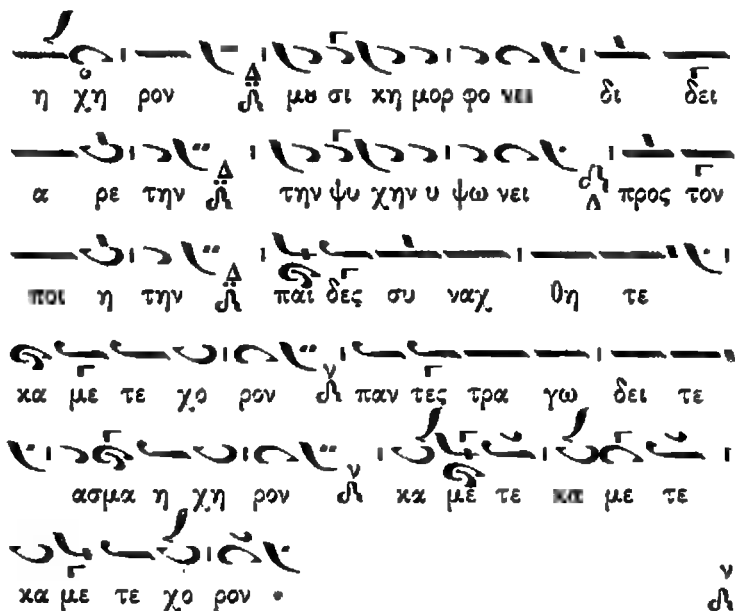 η χη ρον Δ μȣ σι κη μορ φο νει δι δει
α ρε την Δ την ψυ χην υ ψω νει Δ προς τον
ποι η την Δ παι δες συ ναχ θη τε
κα με τε χο ρον ν παν τες τρα γω δει τε
ασμα η χη ρον ν κα με τε κα με τε
κα με τε χο ρον ν